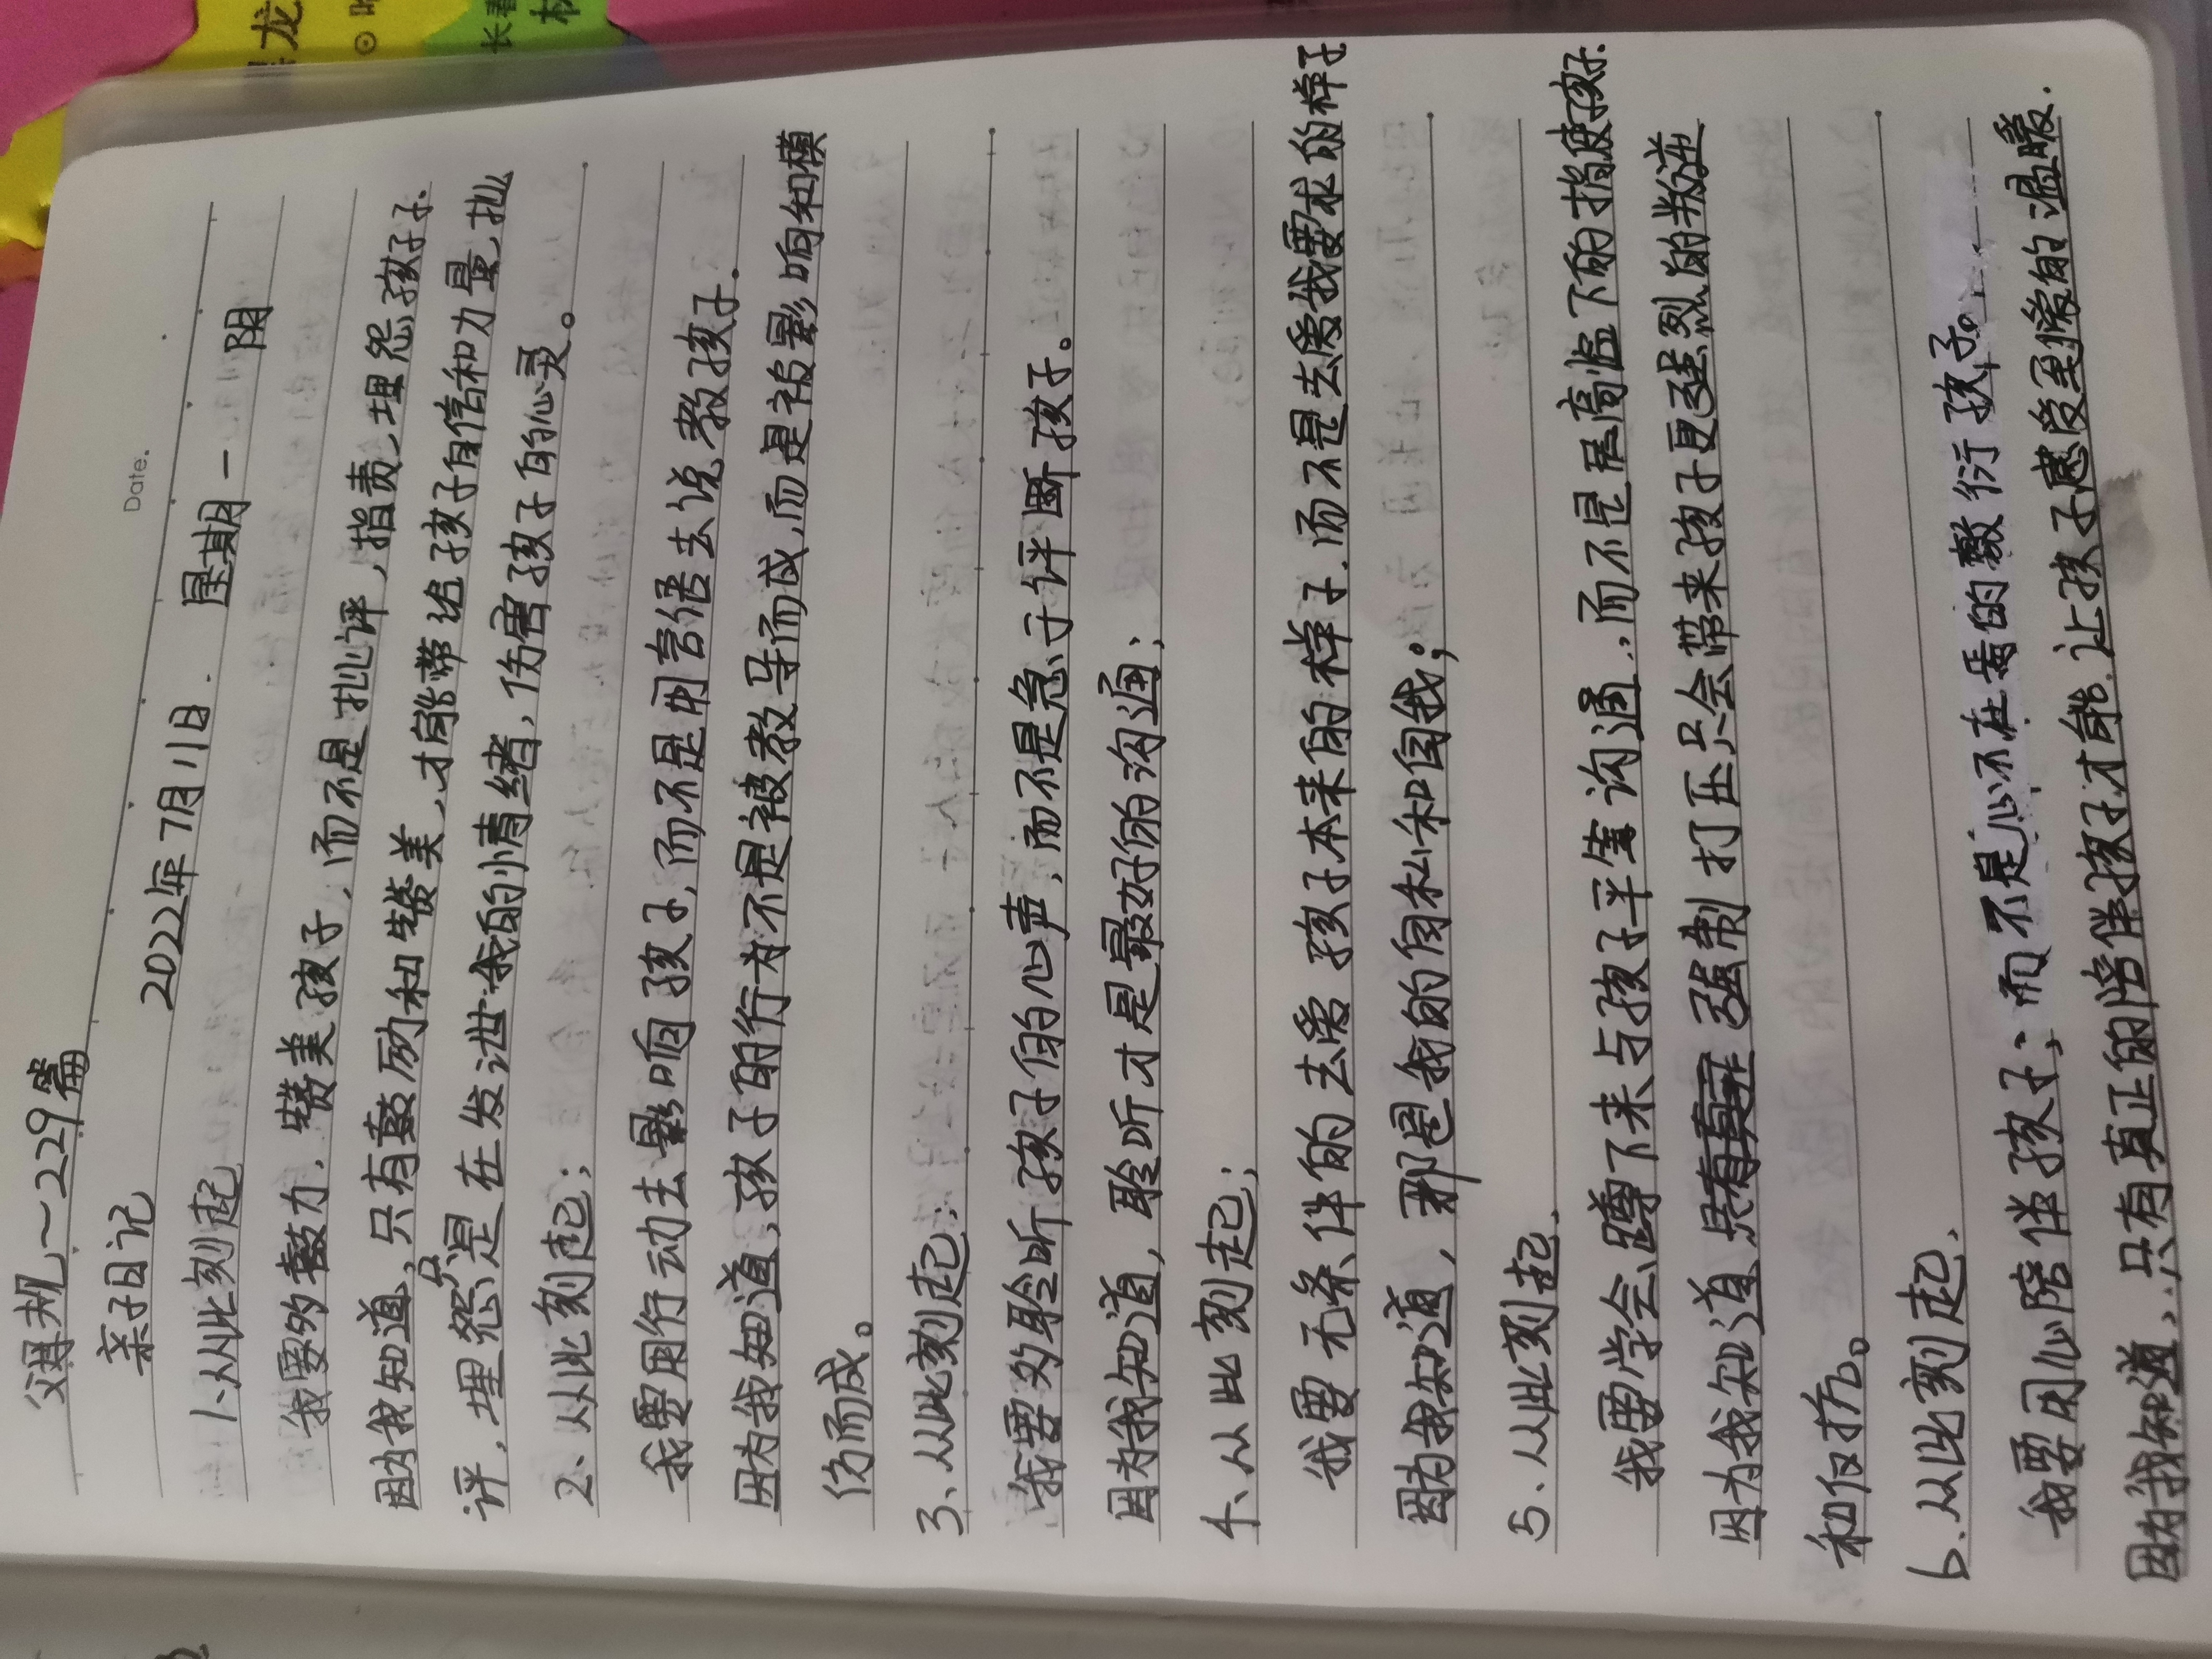 父母规～229篇
Date.
亲子日记 2022年7月11日. 星期一 阴
1、从此刻起
我要多鼓力. 赞美孩子, 而不是批评, 指责、埋怨孩子.
因为我知道, 只有鼓励和赞美, 才能带给孩子自信和力量, 批
评, 埋怨只是在发泄我的情绪, 伤害孩子的心灵。
2、从此刻起;
我要用行动去影响孩子, 而不是用言语去说教孩子.
因为我知道, 孩子的行为不是被教导而成, 而是被影响和模
仿而成。
3、从此刻起;
我要多聆听孩子的心声, 而不是急于评断孩子。
因为我知道, 聆听才是最好的沟通;
4、从此刻起;
我要无条件的去爱孩子本来的样子. 而不是去爱我要求的样子
因为我知道, 那是我的自私和自我;
5、从此刻起.
我要学会蹲下来与孩子平等沟通, 而不是居高临下的指使孩子.
因为我知道 强制打压只会带来孩子更强烈的叛逆
和反抗。
6、从此刻起.
我要用心陪伴孩子; 而不是心不在焉的敷衍孩子。
因为我知道, 只有真正的陪伴孩子才能让孩子感受到爱的温暖.
龙
长春